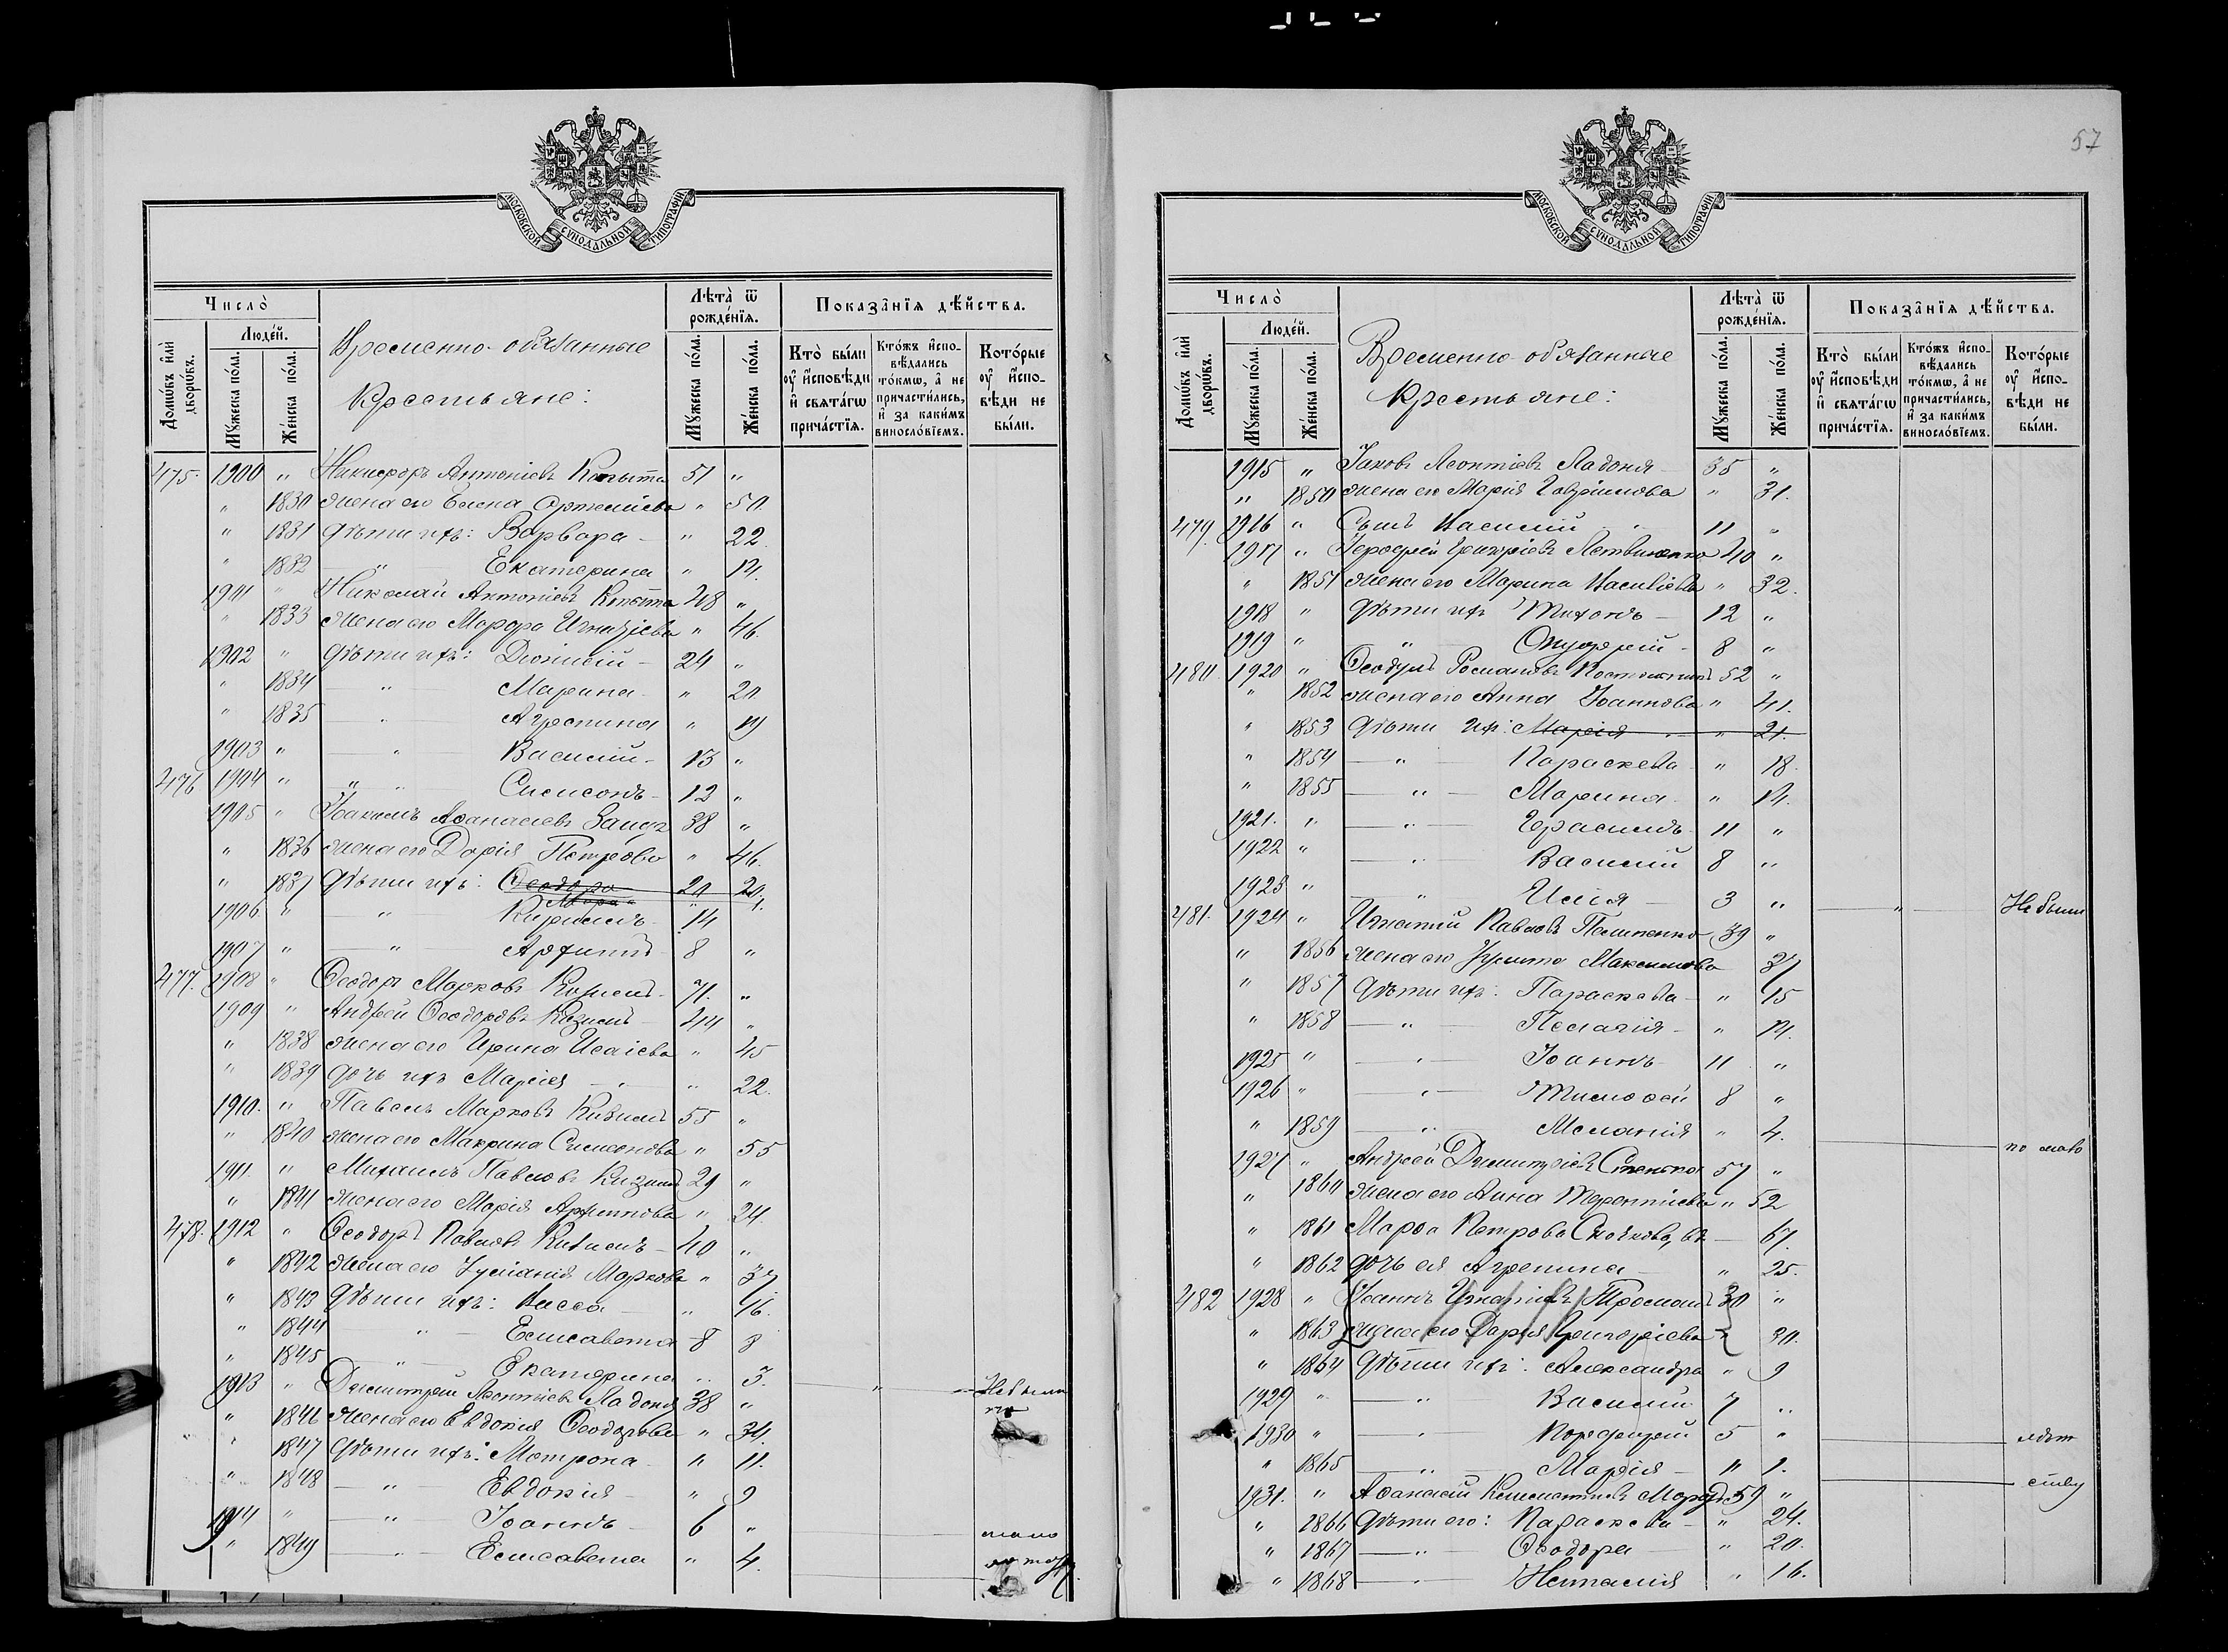 57
МОСКОВСКОЙ СѴНОДАЛЬНОЙ ТИПОГРАФІИ
Число̀
Домѡ́въ и҆лѝ дворѡ́въ.
Люде́й.
Мꙋ́жеска по́ла.
Же́нска по́ла.
Временно-обязанные
Крестьяне:
Лѣта̀ ѿ рожде́нїѧ.
Мꙋ́жеска по́ла.
Же́нска по́ла.
Показа̑нїѧ дѣ́йства.
Кто̀ бы́ли оу҆ и҆сповѣди и҆ свѧта́гѡ прича́стїѧ.
Кто́жъ и҆спо-вѣдались то́кмѡ, а҆ не причасти́лись, и҆ за каки́мъ винослові́емъ.
Кото́рые оу҆ и҆спо-вѣди не бы́ли.
475. 1900 " Никифоръ Антоніевъ Копыта 51 "
" 1830 жена его Елена Артеміева " 50
" 1831 дѣти ихъ: Варвара - " 22
" 1832 " Екатерина " 14.
1901 " Николай Антоніевъ Копыта 48 "
" 1833 жена его Марфа Игнатіева " 46.
1902 " дѣти ихъ: Діонисій - 24 "
" 1834 " Марина - " 20
" 1835 " Агрепина " 19
1903 " " Василій - 13 "
476 1904 " " Симеонъ - 12 "
1905 " Іоакимъ Аѳанасіевъ Заицъ 38 "
" 1836 жена его Дарія Петрова " 46.
" 1837 дѣти ихъ: Ѳеодора 20 20.
1906 " " Кириллъ 14
1907 " " Архиппъ 8 "
477. 1908 " Ѳеодоръ Марковъ Козилъ - 71. "
1909 " Андрей Ѳеодоровъ Козилъ - 44 "
" 1838 жена его Ирина Исаіева " 45
" 1839 дочь ихъ Марія - " 22.
1910. " Павелъ Марковъ Кизилъ 55 "
" 1840 жена его Макрина Симеонова " 55
1911. " Михаилъ Павловъ Кизилъ 29 "
" 1841 жена его Марія Архиппова " 24
478. 1912 " Ѳеодоръ Павловъ Кизилъ - 40 "
" 1842 жена его Іуліанія Маркова " 37
" 1843 дѣти ихъ: Васса - " 16.
" 1844 " Елисавета - 8 8
" 1845 " Екатерина " 3.
1913 " Димитрій Леонтіевъ Ладоня 38 " " Не были
" 1846 жена его Евдокія Ѳеодорова " 34.
" 1847 дѣти ихъ: Матрона " 11.
" 1848 " Евдокія - " 9
1914 " " Іоаннъ 6 "
" 1849 " Елисавета " 4.
МОСКОВСКОЙ СѴНОДАЛЬНОЙ ТИПОГРАФІИ
Число̀
Домѡ́въ и҆лѝ дворѡ́въ.
Люде́й.
Мꙋ́жеска по́ла.
Же́нска по́ла.
Временно-обязанные
Крестьяне:
Лѣта̀ ѿ рожде́нїѧ.
Мꙋ́жеска по́ла.
Же́нска по́ла.
Показа̑нїѧ дѣ́йства.
Кто̀ бы́ли оу҆ и҆сповѣди и҆ свѧта́гѡ прича́стїѧ.
Кто́жъ и҆спо-вѣдались то́кмѡ, а҆ не причасти́лись, и҆ за каки́мъ винослові́емъ.
Кото́рые оу҆ и҆спо-вѣди не бы́ли.
1915 " Іаковъ Леонтіевъ Ладоня 35 "
" 1850 жена его Марія Гавріилова " 31.
479. 1916 " Сынъ Василій " 11 "
1917 " Іероѳей Григоріевъ Литвиненко 40 "
" 1851 жена его Марина Василіева " 32.
1918 " дѣти ихъ Тихонъ - 12 "
1919 " " Онуфрій - 8 "
480 1920 " Ѳеодулъ Романовъ 52 "
" 1852 жена его Анна Іоаннова " 41.
" 1853 дѣти ихъ: Марія " 21.
" 1854 " Параскева - " 18.
" 1855 " Марина - " 14.
1921. " " Герасимъ 11 "
1922 " " Василій 8 "
1923 " " Илія - 3 " " Не были
481. 1924 " Игнатій Павловъ 39 "
" 1856 жена его Іулита Максимова 37
" 1857 дѣти ихъ: Параскева - " 15
" 1858 " Пелагія - " 14.
1925 " " Іоаннъ 11 "
1926 " " Тимоѳей 8 "
" 1859 " Меланія " 4. по мало
1927 " Андрей Димитріевъ 57 "
" 1860 жена его Анна Терентіева " 52
" 1861 Марѳа Петрова 67.
" 1862 дочь ея Агрепина " 25.
482 1928 " Іоаннъ Игнатіевъ 30 "
" 1863 жена его Дарія Григоріева " 30.
" 1864 дѣти ихъ: Александра " 9
1929 " " Василій 7 "
1930 " " Порфирій 5 " лѣт
" 1865 " Марія - " 1. ству
1931. " Аѳанасій Климентіевъ 59 "
" 1866 дѣти его: Параскева - " 24.
" 1867 " Ѳеодора " 20.
" 1868 " Наталія " 16.